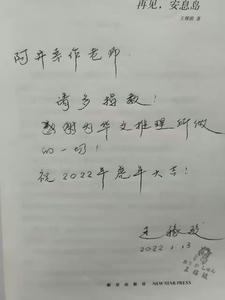 再见，安息岛
王稼骏 著
阿井幸作老师
请多指教！
感谢为华文推理所做
的一切！
祝2022年虎年大吉！
王稼骏
2022.1.13
新星出版社 NEW STAR PRESS